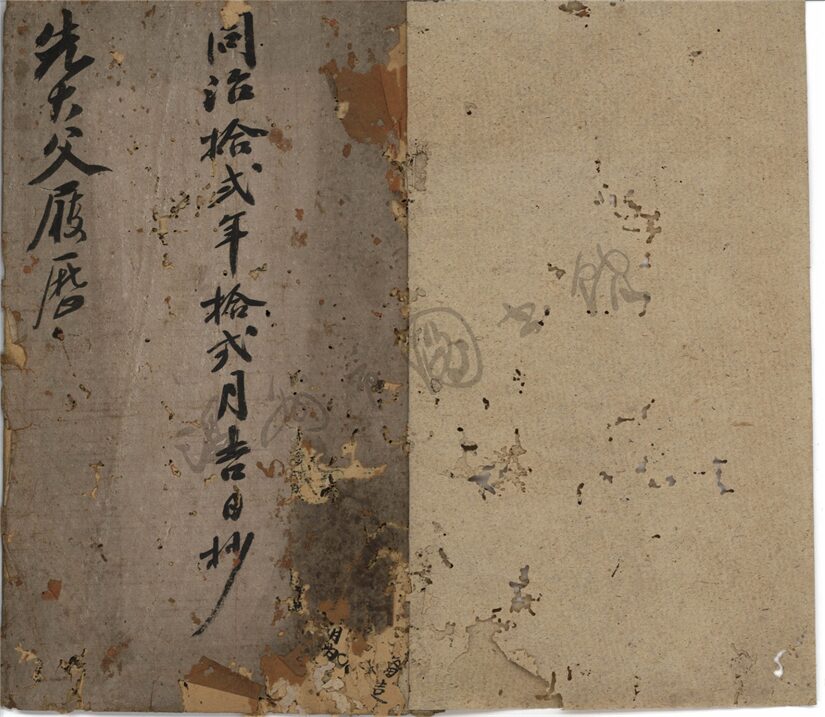 同治拾弍年拾弍月吉日抄
先大父履歷